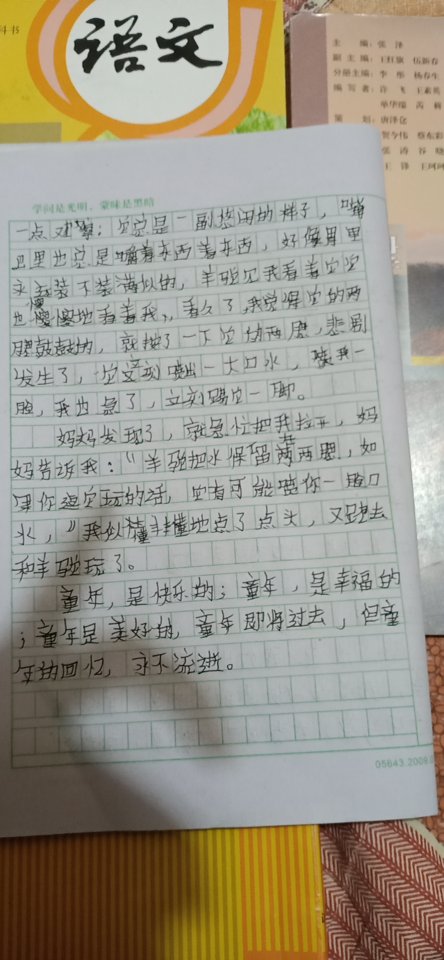 科书
语文
主 编：张 泽
副主编：王红旗 伍新春
分册主编：李 彤 杨春生
编写者：许 飞 王素英
单华瑞 芮
策 划：唐泽仓
贺令伟 蔡东彩
张 涛 谷 晓
王 锋 王珂珂
学问是光明，蒙昧是黑暗
一点对，它总是一副悠闲的样子，嘴
巴里也总是嚼着东西着东西，好像胃里
永远装不装满似的，羊驼见我看着它它
也慢慢地看着我，看久了，我觉得它的两
腮鼓鼓的，就按了一下它的两腮，悲剧
发生了，它立刻喷出一大口水，喷我一
脸，我也急了，立刻踢它一脚。
妈妈发现了，就急忙把我拉开，妈
妈告诉我：“羊驼把水保留在两腮，如
果你逗它玩的话，它有可能喷你一脸口
水，”我似懂非懂地点了点头，又跑去
和羊驼玩了。
童年，是快乐的；童年，是幸福的
；童年是美好的，童年即将过去，但童
年的回忆，永不流逝。
05643.2009.0